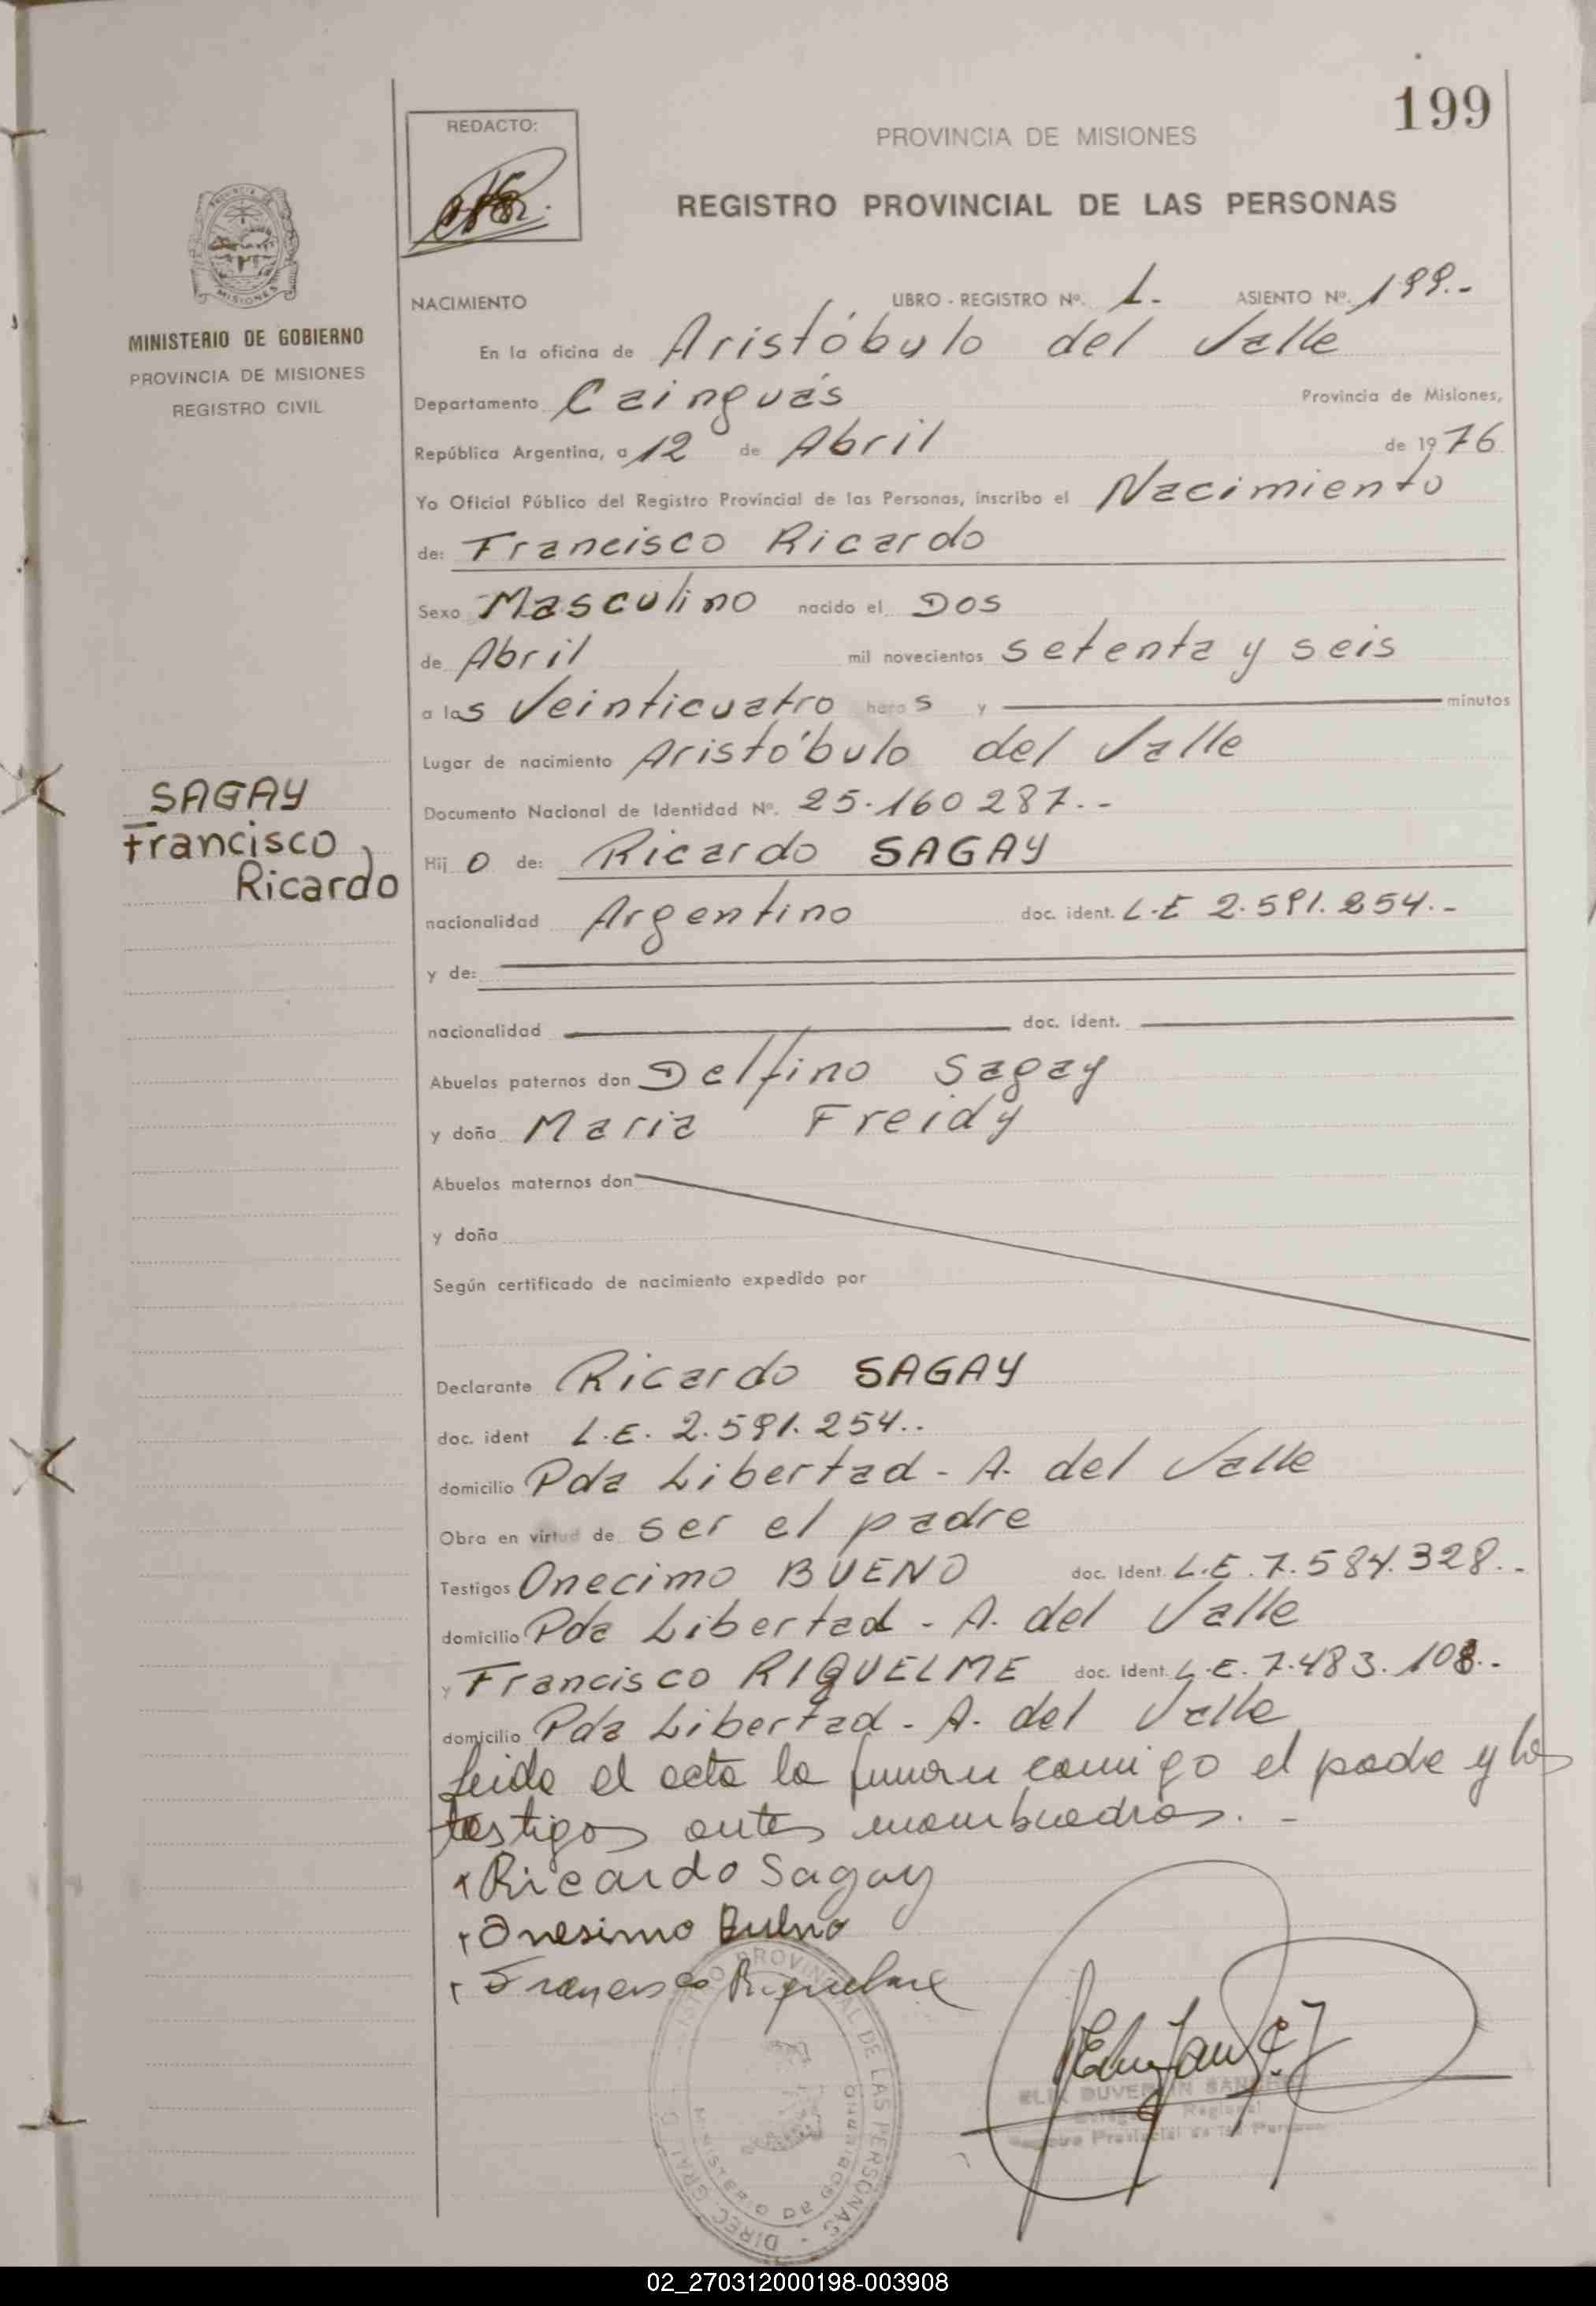 199
REDACTO:
PROVINCIA DE MISIONES
REGISTRO PROVINCIAL DE LAS PERSONAS
MISIONES
MINISTERIO DE GOBIERNO
PROVINCIA DE MISIONES
REGISTRO CIVIL
NACIMIENTO LIBRO - REGISTRO Nº. 1.- ASIENTO Nº. 199.-
En la oficina de Aristóbulo del Valle
Departamento Cainguás Provincia de Misiones,
República Argentina, a 12 de Abril de 1976
Yo Oficial Público del Registro Provincial de las Personas, inscribo el Nacimiento
de: Francisco Ricardo
Sexo Masculino nacido el Dos
de Abril mil novecientos setenta y seis
a las Veinticuatro horas y minutos
Lugar de nacimiento Aristóbulo del Valle
Documento Nacional de Identidad Nº. 25.160287.-
SAGAY
Francisco
Ricardo
Hijo de: Ricardo SAGAY
nacionalidad Argentino doc. ident. L.E 2.591.254.-
y de:
nacionalidad doc. ident.
Abuelos paternos don Delfino Sagay
y doña Maria Freidy
Abuelos maternos don
y doña
Según certificado de nacimiento expedido por
Declarante Ricardo SAGAY
doc. ident L.E. 2.591.254..
domicilio Pda Libertad - A. del Valle
Obra en virtud de ser el padre
Testigos Onecimo BUENO doc. Ident. L.E. 7.584.328.-
domicilio Pda Libertad - A. del Valle
y Francisco RIQUELME doc. ident. L.E. 7.483.108.-
domicilio Pda Libertad - A. del Valle
leida el acta la firman comigo el padre y los
testigos antes nombrados.-
Ricardo Sagay
Onesimo Bueno
Francisco Riquelme
REGISTRO PROVINCIAL DE LAS PERSONAS - DIREC. GRAL.
MINISTERIO DE GOBIERNO
Regional
Registro Provincial de las Personas
02_270312000198-003908